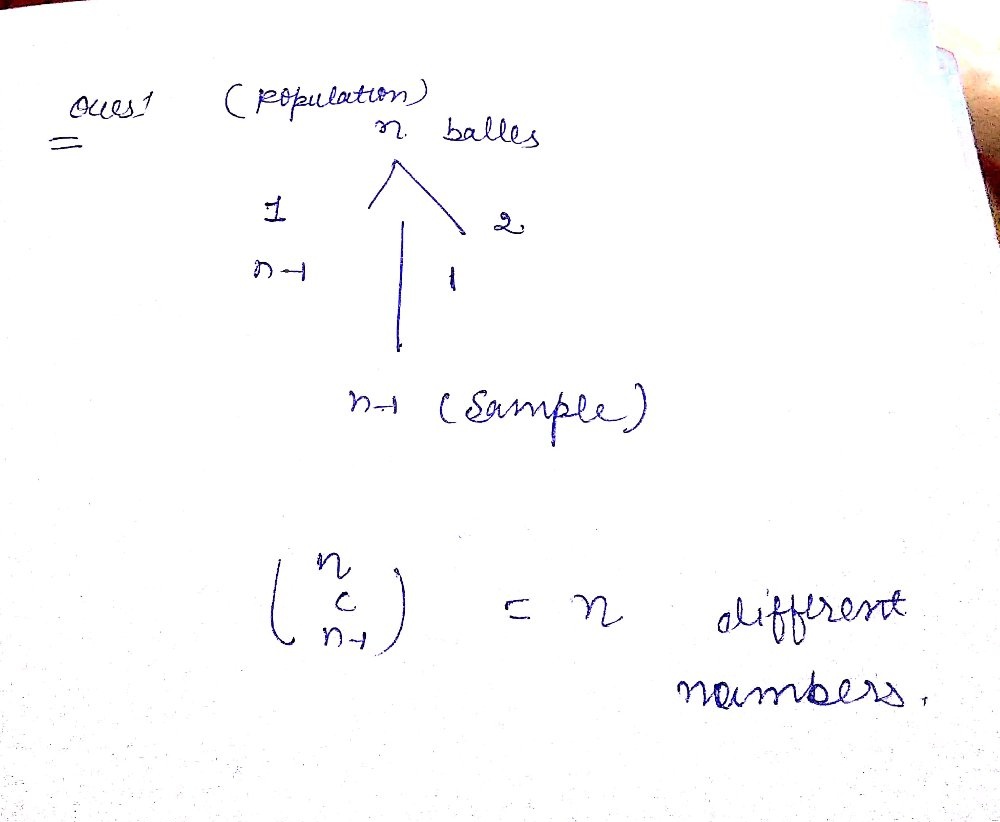 Ques 1 (population)
n balles
1 2
n-1 1
n-1 (Sample)
(n c n-1) = n different
numbers.